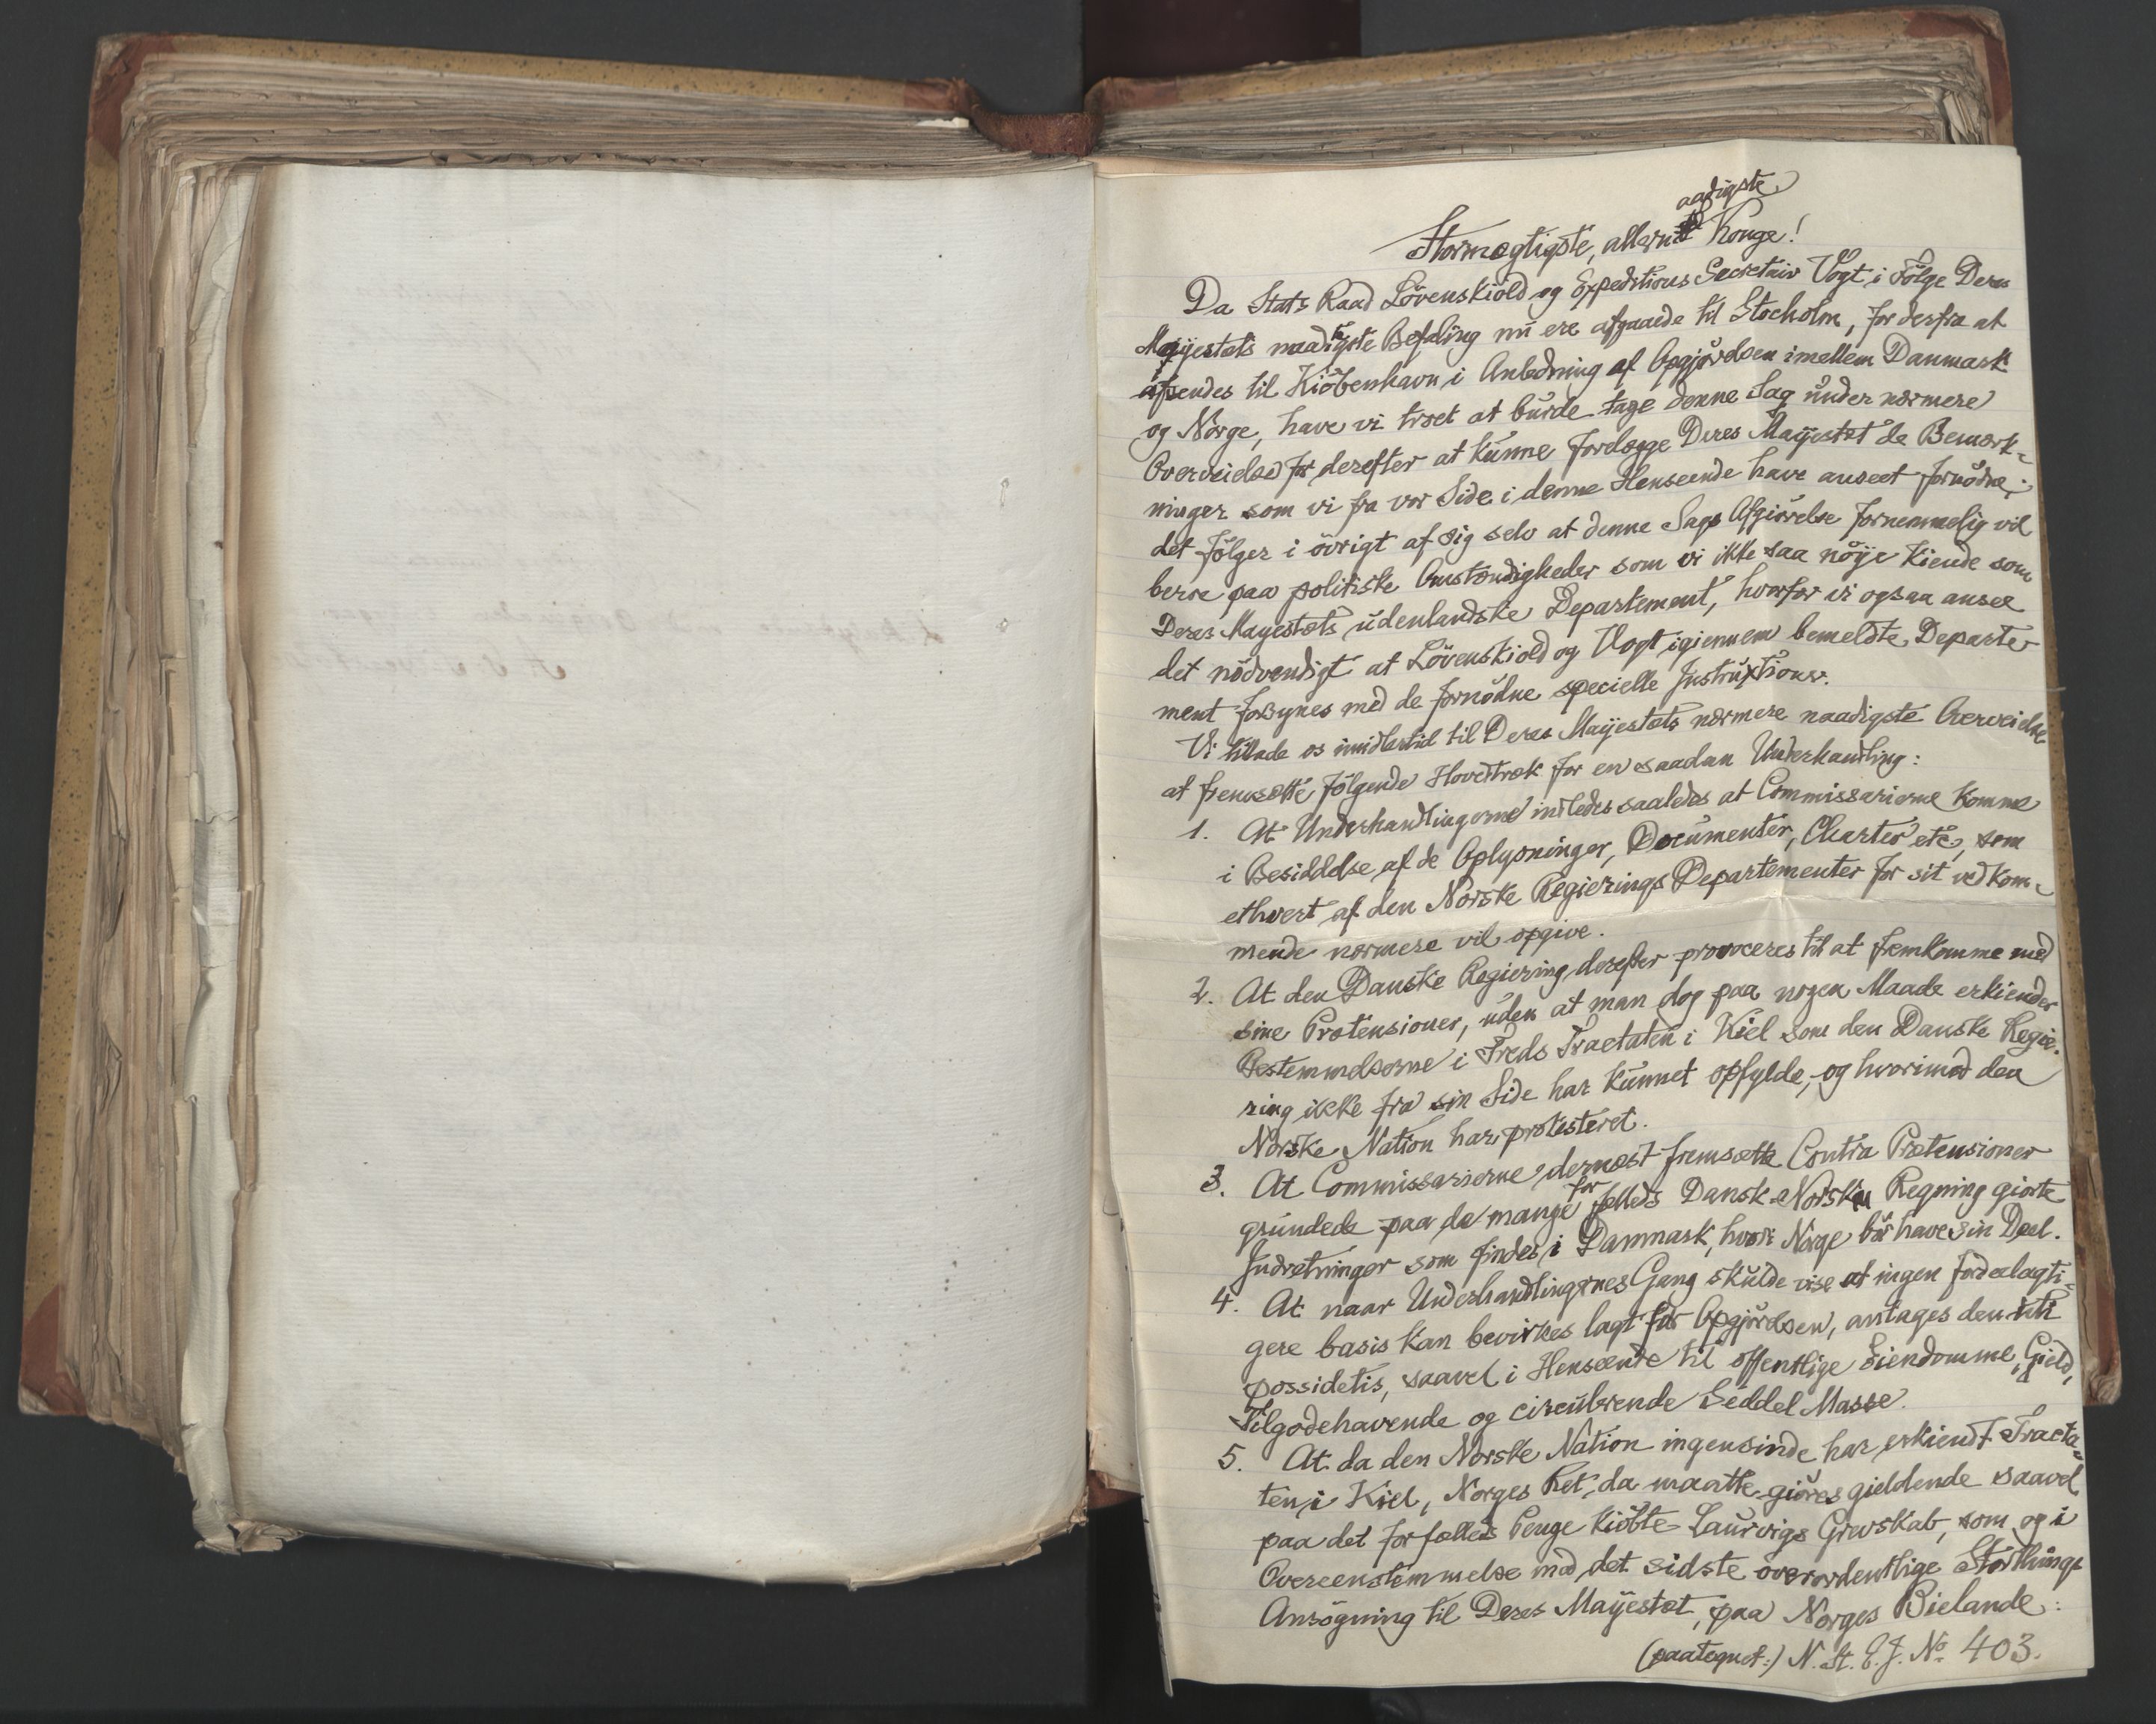 aadigste
Stormægtigste, allern Konge!
Da Stats Raad Lövenskiold og Expeditions Secretair Vogt i Fölge Deres
Mayestæts naadigste Befaling nu ere afgaaede til Stocholm, for derfra at
afsendes til Kiöbenhavn i Anledning af Opgjörelsen imellem Danmark
og Norge, have vi troet at burde tage denne Sag under nærmere
Overveielse for derefter at kunne forelægge Deres Mayestæt de Bemærk-
ninger som vi fra vor Side i denne Henseende have anseet fornödne;
det fölger i övrigt af sig selv at denne Sags Afgiörelse fornemmelig vil
beroe paa politiske Omstændigheder som vi ikke saa nöye kiende som
Deres Mayestæts udenlandske Departement, hvorfor vi ogsaa ansee
det nödvendigt at Lövenskiold og Vogt igiennem bemeldte Departe
ment forsynes med de fornödne specielle Instruxtioner.
Vi tillade os imidlertid til Deres Mayestæts nærmere naadigste Overveielse
at fremsætte fölgende Hovedtræk for en saadan Underhandling:
1. At Underhandlingerne indledes saaledes at Commissarierne komme
i Besiddelse af de Oplysninger, Documenter, Charter etc, som
ethvert af den Norske Regierings Departementer for sit vedkom-
mende nærmere vil opgive.
2. At den Danske Regiering derefter provoceres til at fremkomme med
sine Prætensioner, uden at man dog paa nogen Maade erkiender
Bestemmelserne i Freds Tractaten i Kiel som den Danske Regie-
ring ikke fra sin Side har kunnet opfylde, og hvorimod den
Norske Nation har protesteret.
3. At Commissarierne dernæst fremsætte Contra Prætensioner
grundede paa de mange for fælleds Dansk-Norsk Regning giorte
Indretninger som findes i Danmark, hvori Norge bör have sin Deel.
4. At naar Underhandlingernes Gang skulde vise at ingen fordelagti-
gere basis kan bevirkes lagt for Opgjörelsen, antages den uti
possidetis, saavel i Henseende til offentlige Eiendomme, Gield,
Tilgodehavende og circulerende Seddel Masse.
5. At da den Norske Nation ingensinde har erkiendt Tracta-
ten i Kiel, Norges Ret da maatte giöres gieldende saavel
paa det for fælleds Penge kiöbte Laurvigs Grevskab, som og i
Overeenstemmelse med det sidste overordentlige Storthings
Ansögning til Deres Mayestæt, paa Norges Bielande:
(paategnet:) N. St. E. J. No 403.